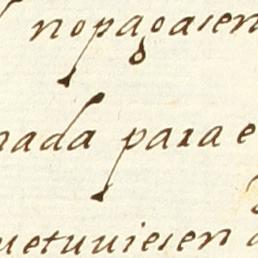 no pagasen
nada para e
uetuuiesen